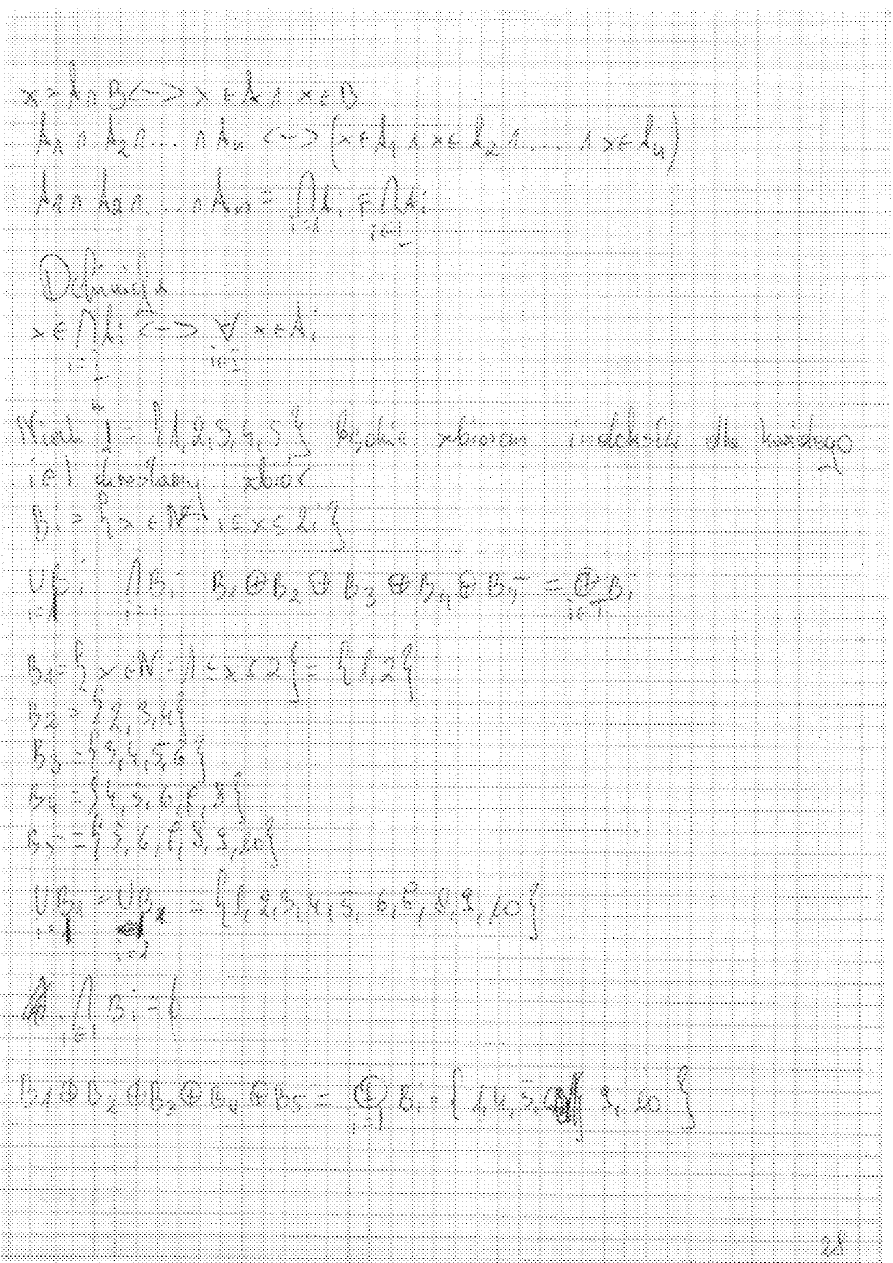 x = A ∩ B <-> x ∈ A ∧ x ∈ B
A₁ ∩ A₂ ∩ ... ∩ Aₙ <-> (x ∈ A₁ ∧ x ∈ A₂ ∧ ... ∧ x ∈ Aₙ)
A₁ ∩ A₂ ∩ ... ∩ Aₙ = ⋂ Aᵢ = ⋂ Aᵢ
i=1 i∈I
Definicja
x ∈ ⋂ Aᵢ <-> ∀ x ∈ Aᵢ
i∈I i∈I
Niech I = {1,2,3,4,5} będzie zbiorem indeksów dla każdego
i∈I określamy zbiór
Bi = {x ∈ N : i ≤ x ≤ 2i}
⋃Bi ⋂Bi B₁ ⊕ B₂ ⊕ B₃ ⊕ B₄ ⊕ B₅ = ⊕ Bi
i∈I i∈I i∈I
B₁ = {x ∈ N : 1 ≤ x ≤ 2} = {1,2}
B₂ = {2,3,4}
B₃ = {3,4,5,6}
B₄ = {4,5,6,7,8}
B₅ = {5,6,7,8,9,10}
= {1,2,3,4,5,6,7,8,9,10}
⋂ Bi = {
i∈I
B₁ ⊕ B₂ ⊕ B₃ ⊕ B₄ ⊕ B₅ = ⊕ Bi = {1,4,5, 9,10}
i∈I
28